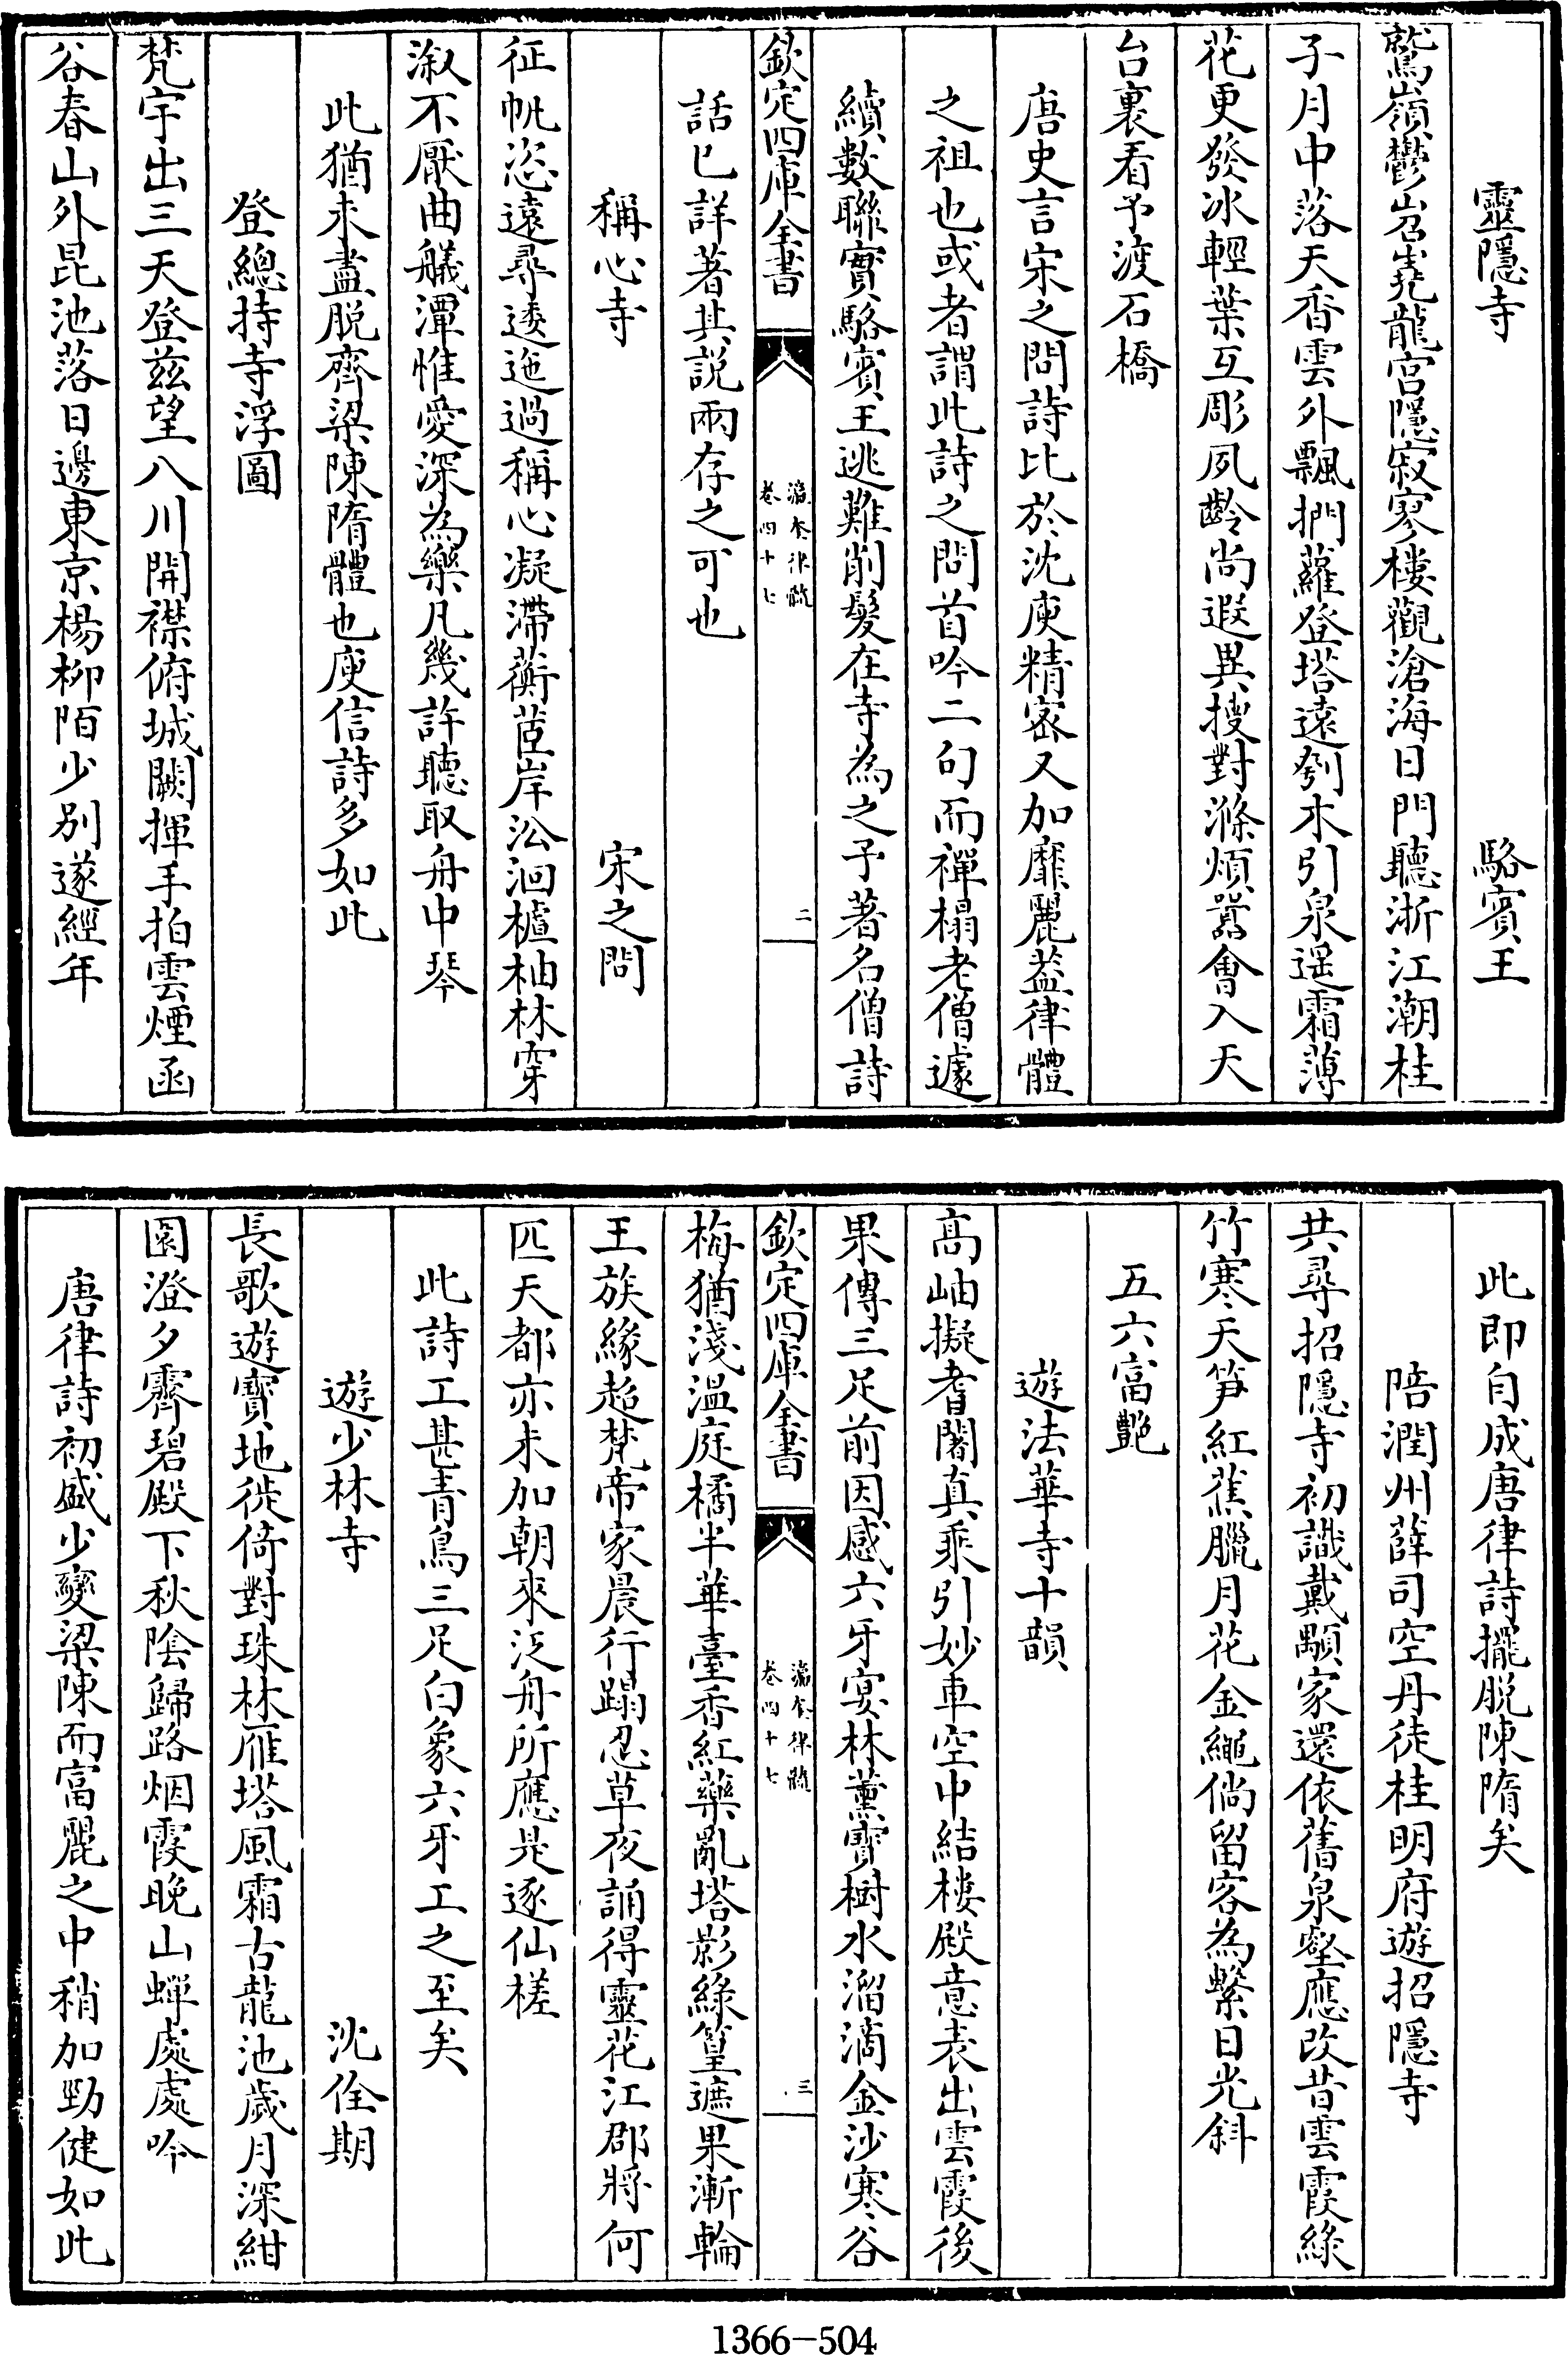 靈隱寺　駱賓王
鷲嶺鬱岧嶤龍宮隱寂寥樓觀滄海日門聽浙江潮桂
子月中落天香雲外飄捫蘿登塔遠刳木引泉遥霜薄
花更發冰輕葉互彫夙齡尚遐異搜對滌煩囂會入天
台裏看予渡石橋
唐史言宋之問詩比於沈庾精宻又加靡麗葢律體
之祖也或者謂此詩之問首吟二句而禪榻老僧遽
續數聯實駱賓王逃難削髮在寺為之予著名僧詩
欽定四庫全書
瀛奎律髓
卷四十七
二
話已詳著其説兩存之可也
稱心寺　宋之問
征帆恣遠尋逶迤過稱心凝滯蘅茝岸沿洄櫨柚林穿
溆不厭曲艤潭惟愛深為樂凡幾許聽取舟中琴
此猶未盡脱齊梁陳隋體也庾信詩多如此
登總持寺浮圖
梵宇出三天登兹望八川開襟俯城闕揮手拍雲煙函
谷春山外昆池落日邊東京楊柳陌少别遂經年
此即自成唐律詩擺脱陳隋矣
陪潤州薛司空丹徒桂明府遊招隱寺
共尋招隱寺初識戴顒家還依舊泉壑應改昔雲霞緑
竹寒天笋紅蕉臘月花金繩倘留客為繫日光斜
五六富艷
遊法華寺十韻
高岫擬耆闍真乘引妙車空中結樓殿意表出雲霞後
果傳三足前因感六牙宴林薰寶樹水溜滴金沙寒谷
欽定四庫全書
瀛奎律髓
卷四十七
三
梅猶淺温庭橘半華臺香紅藥亂塔影緑篁遮果漸輪
王族緣超梵帝家晨行蹋忍草夜誦得靈花江郡將何
匹天都亦未加朝來泛舟所應是逐仙槎
此詩工甚青鳥三足白象六牙工之至矣
遊少林寺　沈佺期
長歌遊寶地徙倚對珠林雁塔風霜古龍池歲月深紺
園澄夕霽碧殿下秋陰歸路烟霞晚山蟬處處吟
唐律詩初盛少變梁陳而富麗之中稍加勁健如此
1366-504